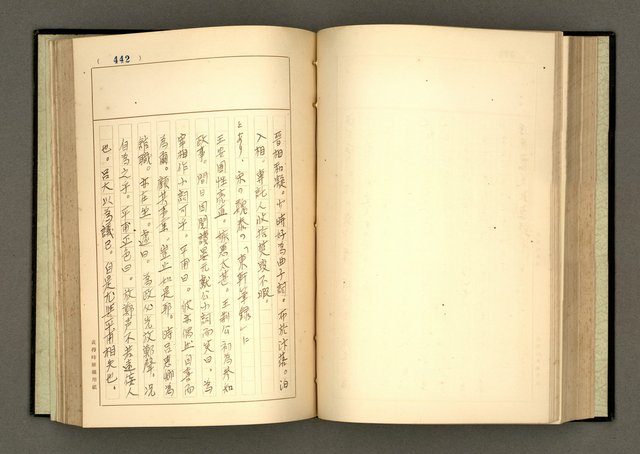 (442)
晋相和凝。少時好為曲子詞。布於汴洛。洎
入相。専託人收拾焚毀不暇。
とあり、宋の魏泰の「東軒筆録」に
王安国性亮直。嫉悪太甚。王荊公初為参知
政事。間日因閲讀晏元献公小詞而笑曰。為
宰相作小詞可乎。平甫曰。彼亦偶然自喜而
為爾。顧其事業。豈止如是耶。時呂恵卿為
館職。亦在坐。遽曰。為政必先放鄭聲。况
自為之乎。平甫正色曰。放鄭声不若遠佞人
也。呂大以為議己。自是尤與平甫相失也。